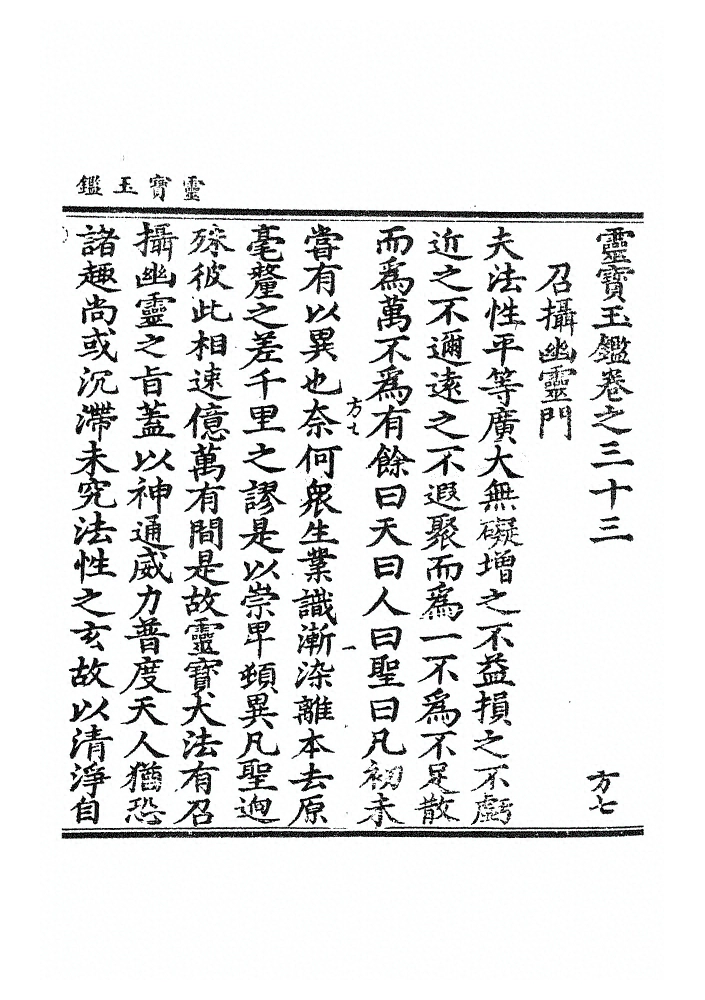 靈寶玉鑑
靈寶玉鑑卷之三十三
方七
召攝幽靈門
夫法性平等廣大無礙增之不益損之不虧
近之不邇遠之不遐聚而爲一不爲不足散
而爲萬不爲有餘曰天曰人曰聖曰凡初未
嘗有以異也奈何衆生業識漸染離本去原
方七
一
毫釐之差千里之謬是以崇卑頓異凡聖逈
殊彼此相速億萬有間是故靈寶大法有召
攝幽靈之旨蓋以神通威力普度天人猶恐
諸趣尚或沉滯未究法性之玄故以清淨自